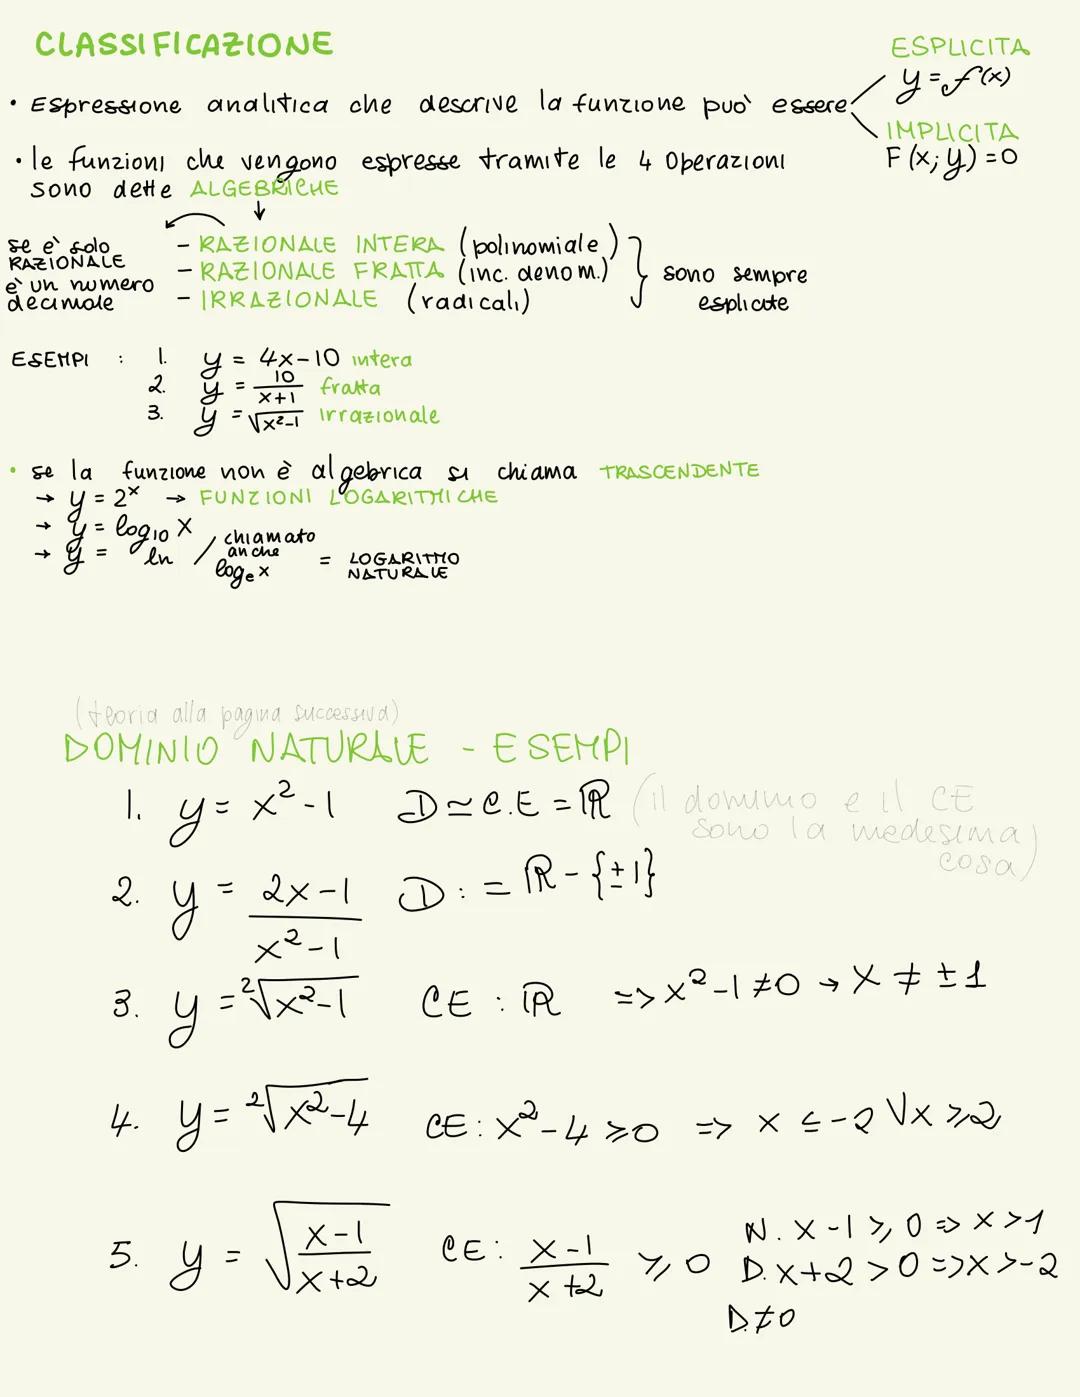 CLASSIFICAZIONE
ESPLICITA
y = f(x)
• Espressione analitica che descrive la funzione può essere:
IMPLICITA
F(x; y) = 0
• le funzioni che vengono espresse tramite le 4 operazioni
sono dette ALGEBRICHE
se è solo
RAZIONALE
è un numero
decimale
- RAZIONALE INTERA (polinomiale)
- RAZIONALE FRATTA (inc. denom.)
- IRRAZIONALE (radicali)
sono sempre
esplicite
ESEMPI : 1. y = 4x-10 intera
2. y = 10/(x+1) fratta
3. y = √x²-1 irrazionale
• se la funzione non è algebrica si chiama TRASCENDENTE
→ y = 2ˣ → FUNZIONI LOGARITMICHE
→ y = log₁₀ x
→ y = ln / chiamato anche logₑx = LOGARITMO NATURALE
(teoria alla pagina successiva)
DOMINIO NATURALE - ESEMPI
1. y = x²-1 D ≃ C.E = ℝ (il dominio e il CE
sono la medesima
cosa)
2. y = (2x-1)/(x²-1) D : = ℝ - {±1}
3. y = ²√x²-1 CE : ℝ => x²-1 ≠ 0 → x ≠ ±1
4. y = ²√x²-4 CE : x²-4 ⩾ 0 => x ≤ -2 ∨ x ⩾ 2
5. y = √(x-1)/(x+2) CE : (x-1)/(x+2) ⩾ 0
N. x-1 ⩾ 0 => x > 1
D. x+2 > 0 => x > -2
D. ≠ 0